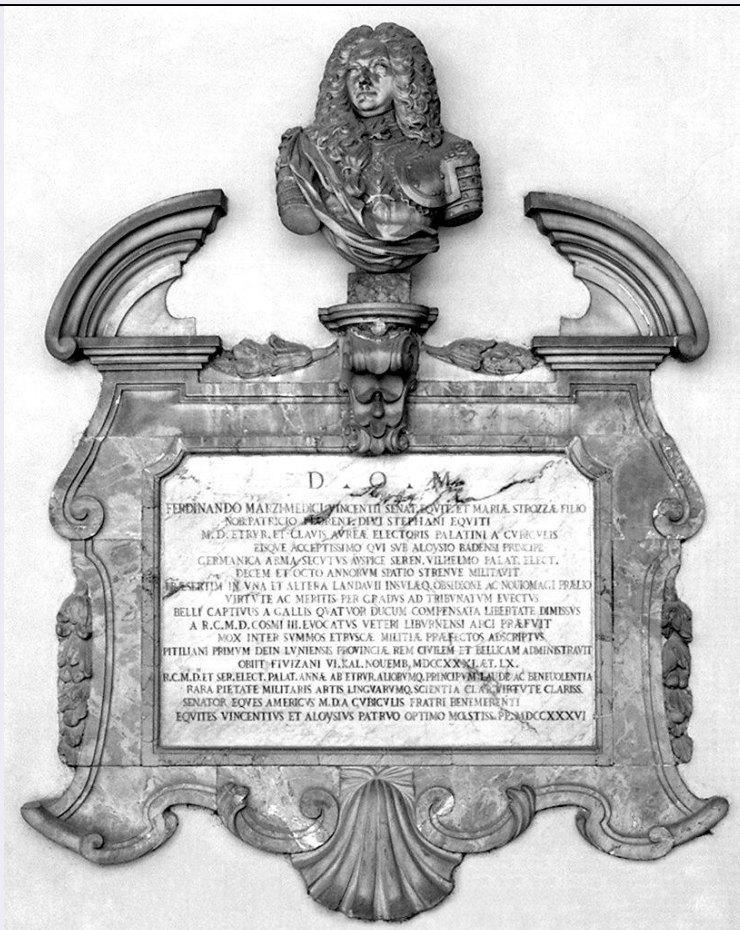 D . O . M
FERDINANDO MARZI-MEDICI, VINCENTII SENAT. EQVIT. ET MARIÆ STROZZÆ FILIO
NOB. PATRICIO FLORENT. DIVI STEPHANI EQVITI
M. D. ETRVR. ET CLAVIS AVREÆ ELECTORIS PALATINI A CVBICVLIS
EISQVE ACCEPTISSIMO QVI SVB ALOYSIO BADENSI PRINCIPE
GERMANICA ARMA SECVTVS AVSPICE SEREN. VILHELMO PALAT. ELECT.
DECEM ET OCTO ANNORVM SPATIO STRENVE MILITAVIT
PRÆSERTIM IN VNA ET ALTERA LANDAVII INSVLÆQ. OBSIDIONE AC NOUIOMAGI PRÆLIO
VIRTVTE AC MERITIS PER GRADVS AD TRIBVNATVM EVECTVS
BELLI CAPTIVVS A GALLIS QVATVOR DUCUM COMPENSATA LIBERTATE DIMISSVS
A R. C. M. D. COSMI III. EVOCATVS VETERI LIBVRNENSI ARCI PRÆFVIT
MOX INTER SVMMOS ETRVSCÆ MILITIÆ PRÆFECTOS ADSCRIPTVS
PITILIANI PRIMVM DEIN LVNIENSIS PROVINCIÆ REM CIVILEM ET BELLICAM ADMINISTRAVIT
OBIIT FIVIZANI VI. KAL. NOUEMB. MDCCXXXI. ÆT. LX.
R. C. M. D. ET SER. ELECT. PALAT. ANNÆ AB ETRVR. ALIORVMQ. PRINCIPVM LAUDE AC BENEUOLENTIA
RARA PIETATE MILITARIS ARTIS LINGVARVMQ. SCIENTIA CLAR. VIRTVTE CLARISS.
SENATOR EQVES AMERICVS M. D. A CVBICVLIS FRATRI BENEMERENTI
EQVITES VINCENTIVS ET ALOYSIVS PATRVO OPTIMO MŒSTISS. PP. MDCCXXXVI